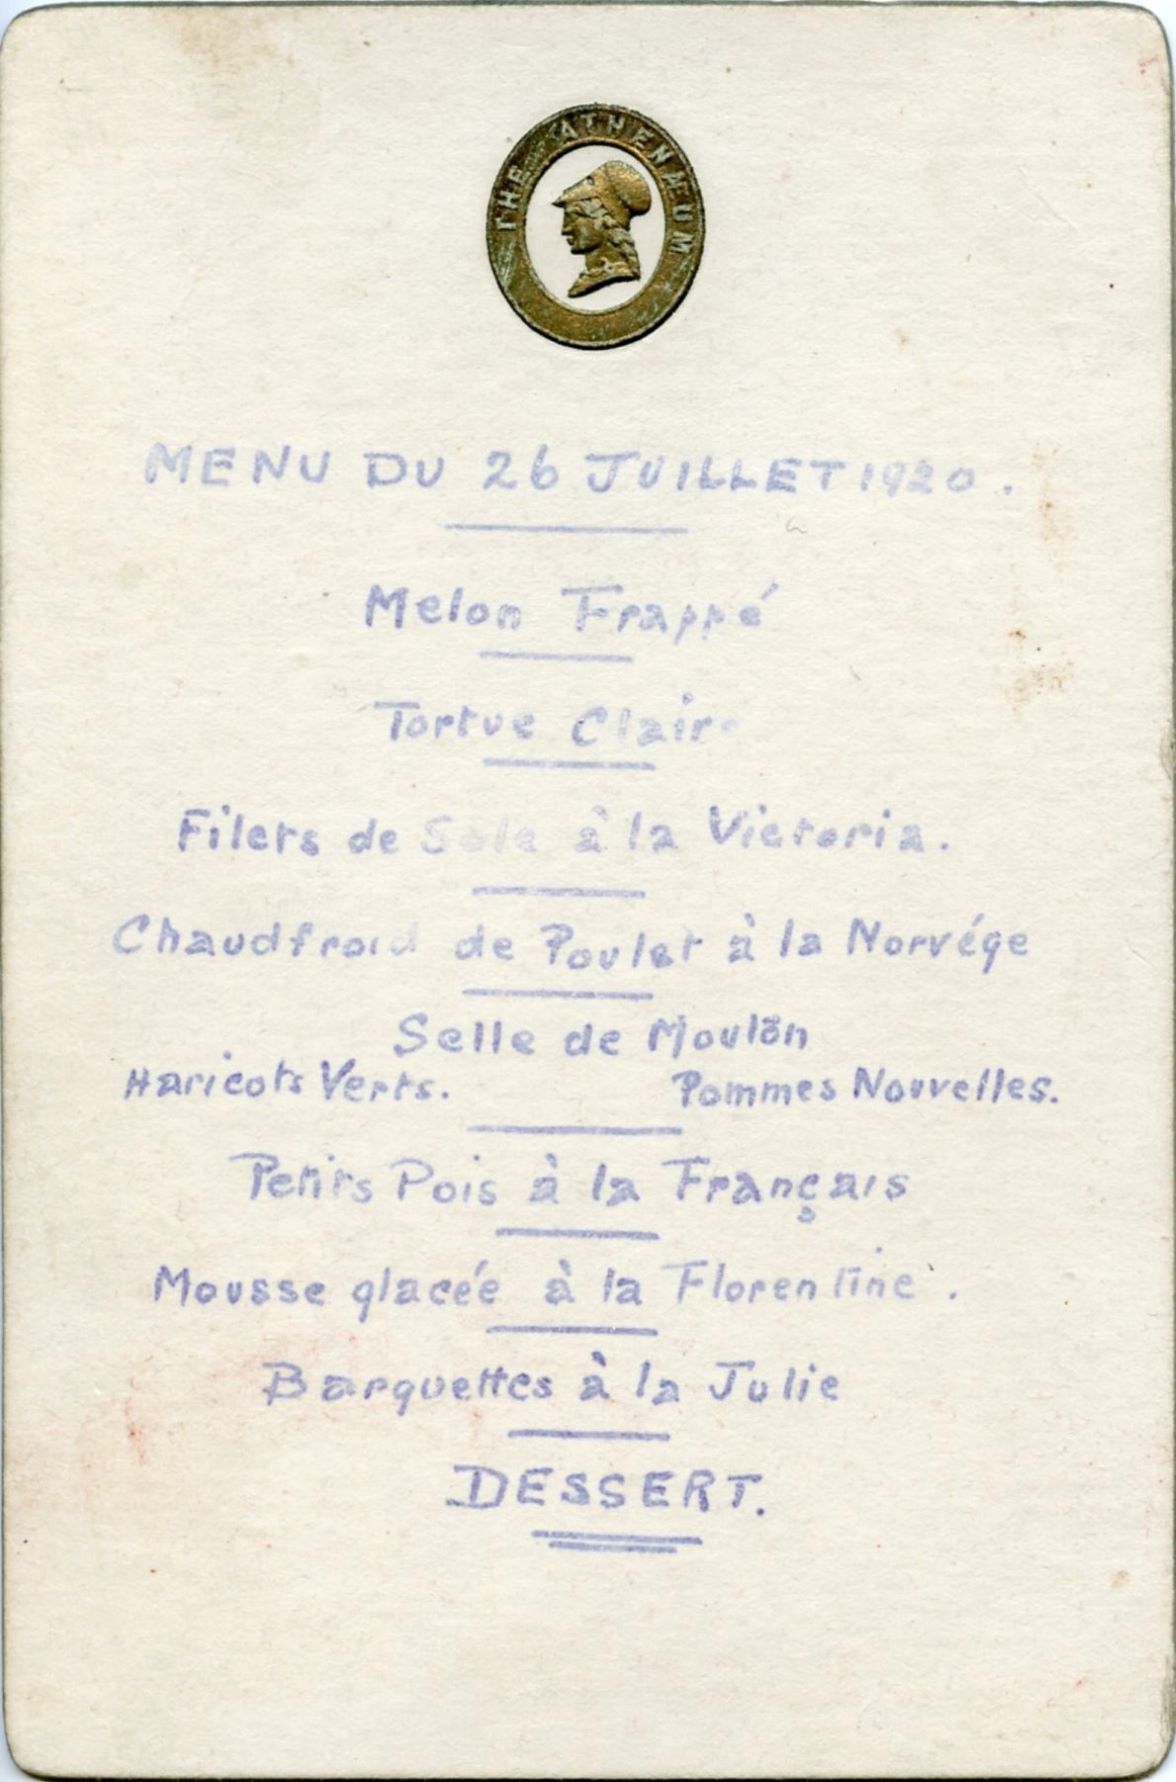 THE ATHENÆUM
MENU DU 26 JUILLET 1920.
Melon Frappé
Tortue Claire
Filets de Sole à la Victoria.
Chaudfroid de Poulet à la Norvége
Selle de Moutôn
Haricots Verts. Pommes Nouvelles.
Petits Pois à la Français
Mousse glacée à la Florentine.
Barquettes à la Julie
DESSERT.